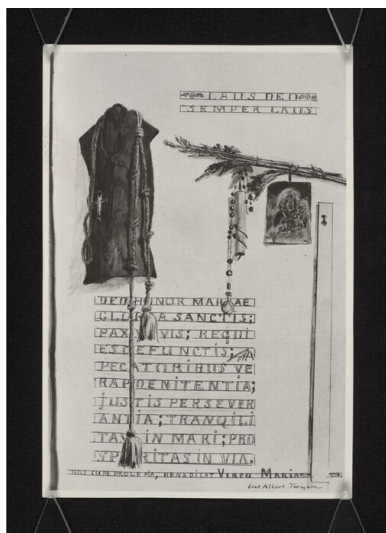 LAUS DEO
SEMPER LAUS
DEO; HONOR MARIAE
GLORIA SANCTIS;
PAX VIVIS; REQUI
ES DEFUNCTIS;
PECATORIBUS VE
RA POENITENTIA;
JUSTIS PERSEVER
ANTIA; TRANQILI
TAS IN MARI; PRO
SPERITAS IN VIA.
NOS CUM PROLE PIA, BENEDICAT VIRGO MARIA
Albert